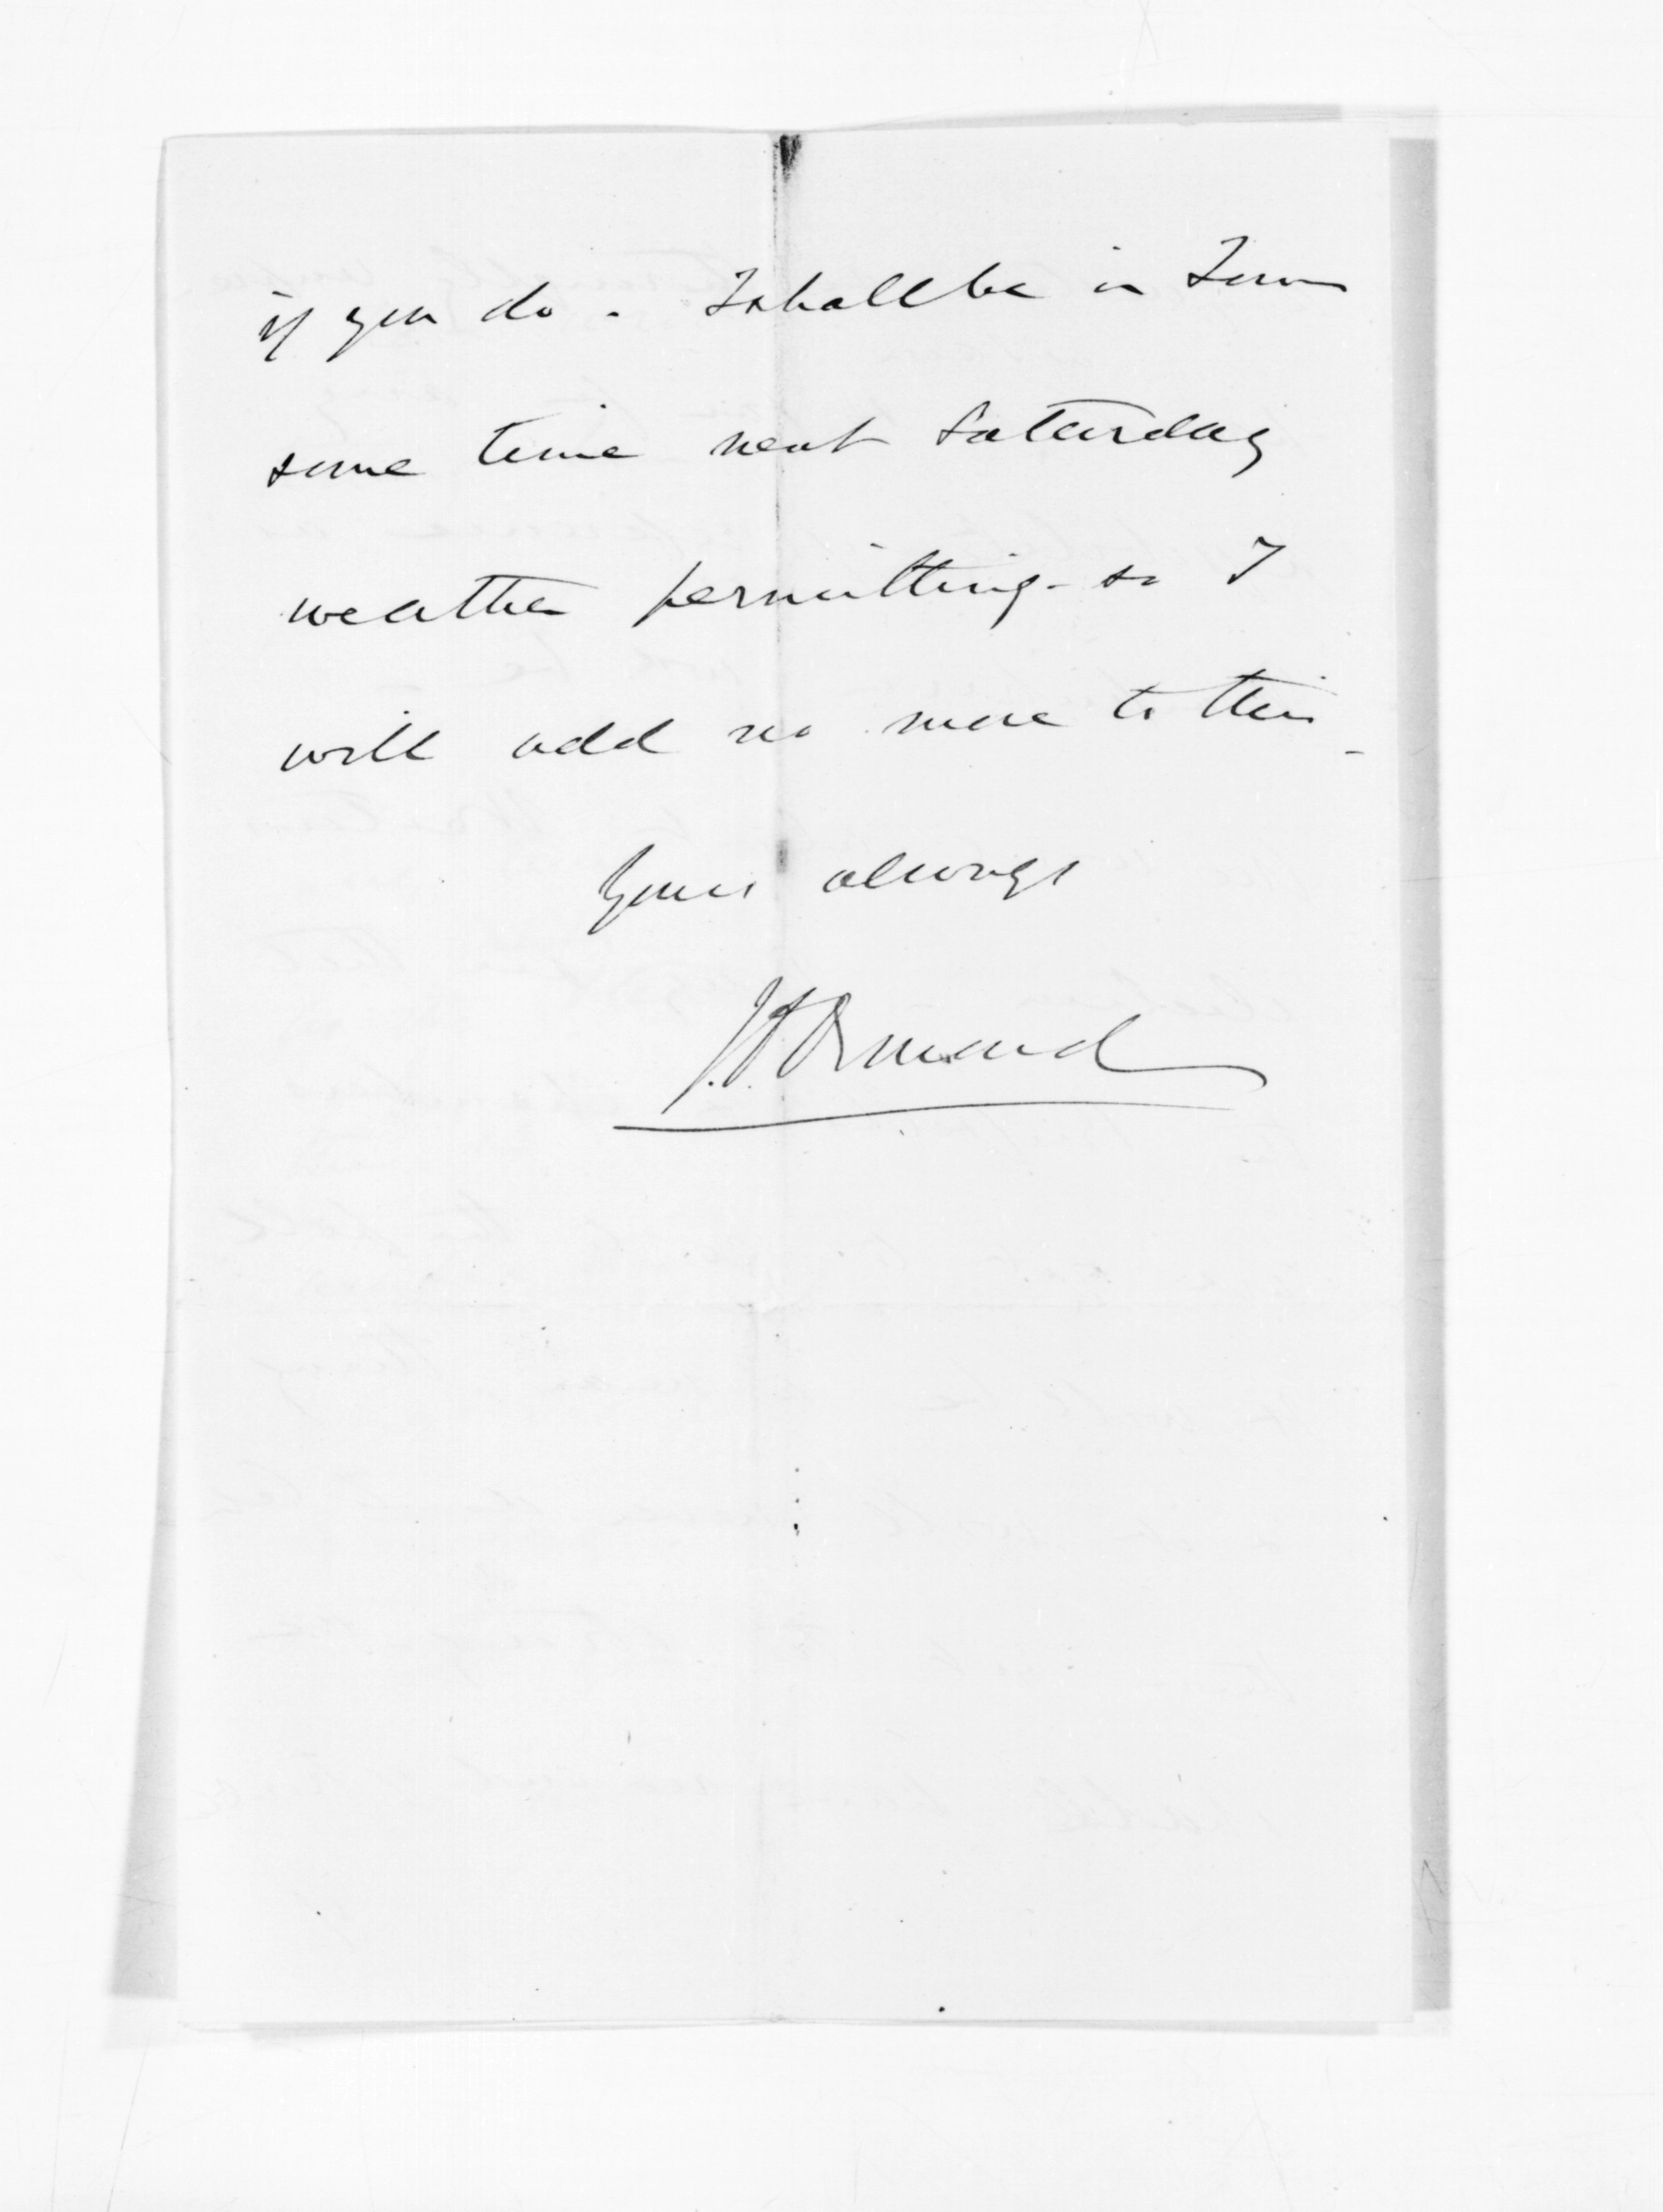 if you do. I shall be in Town
some time next Saturday
weather permitting - so I
will add no more to this -
Yours always
J. D. Ormond